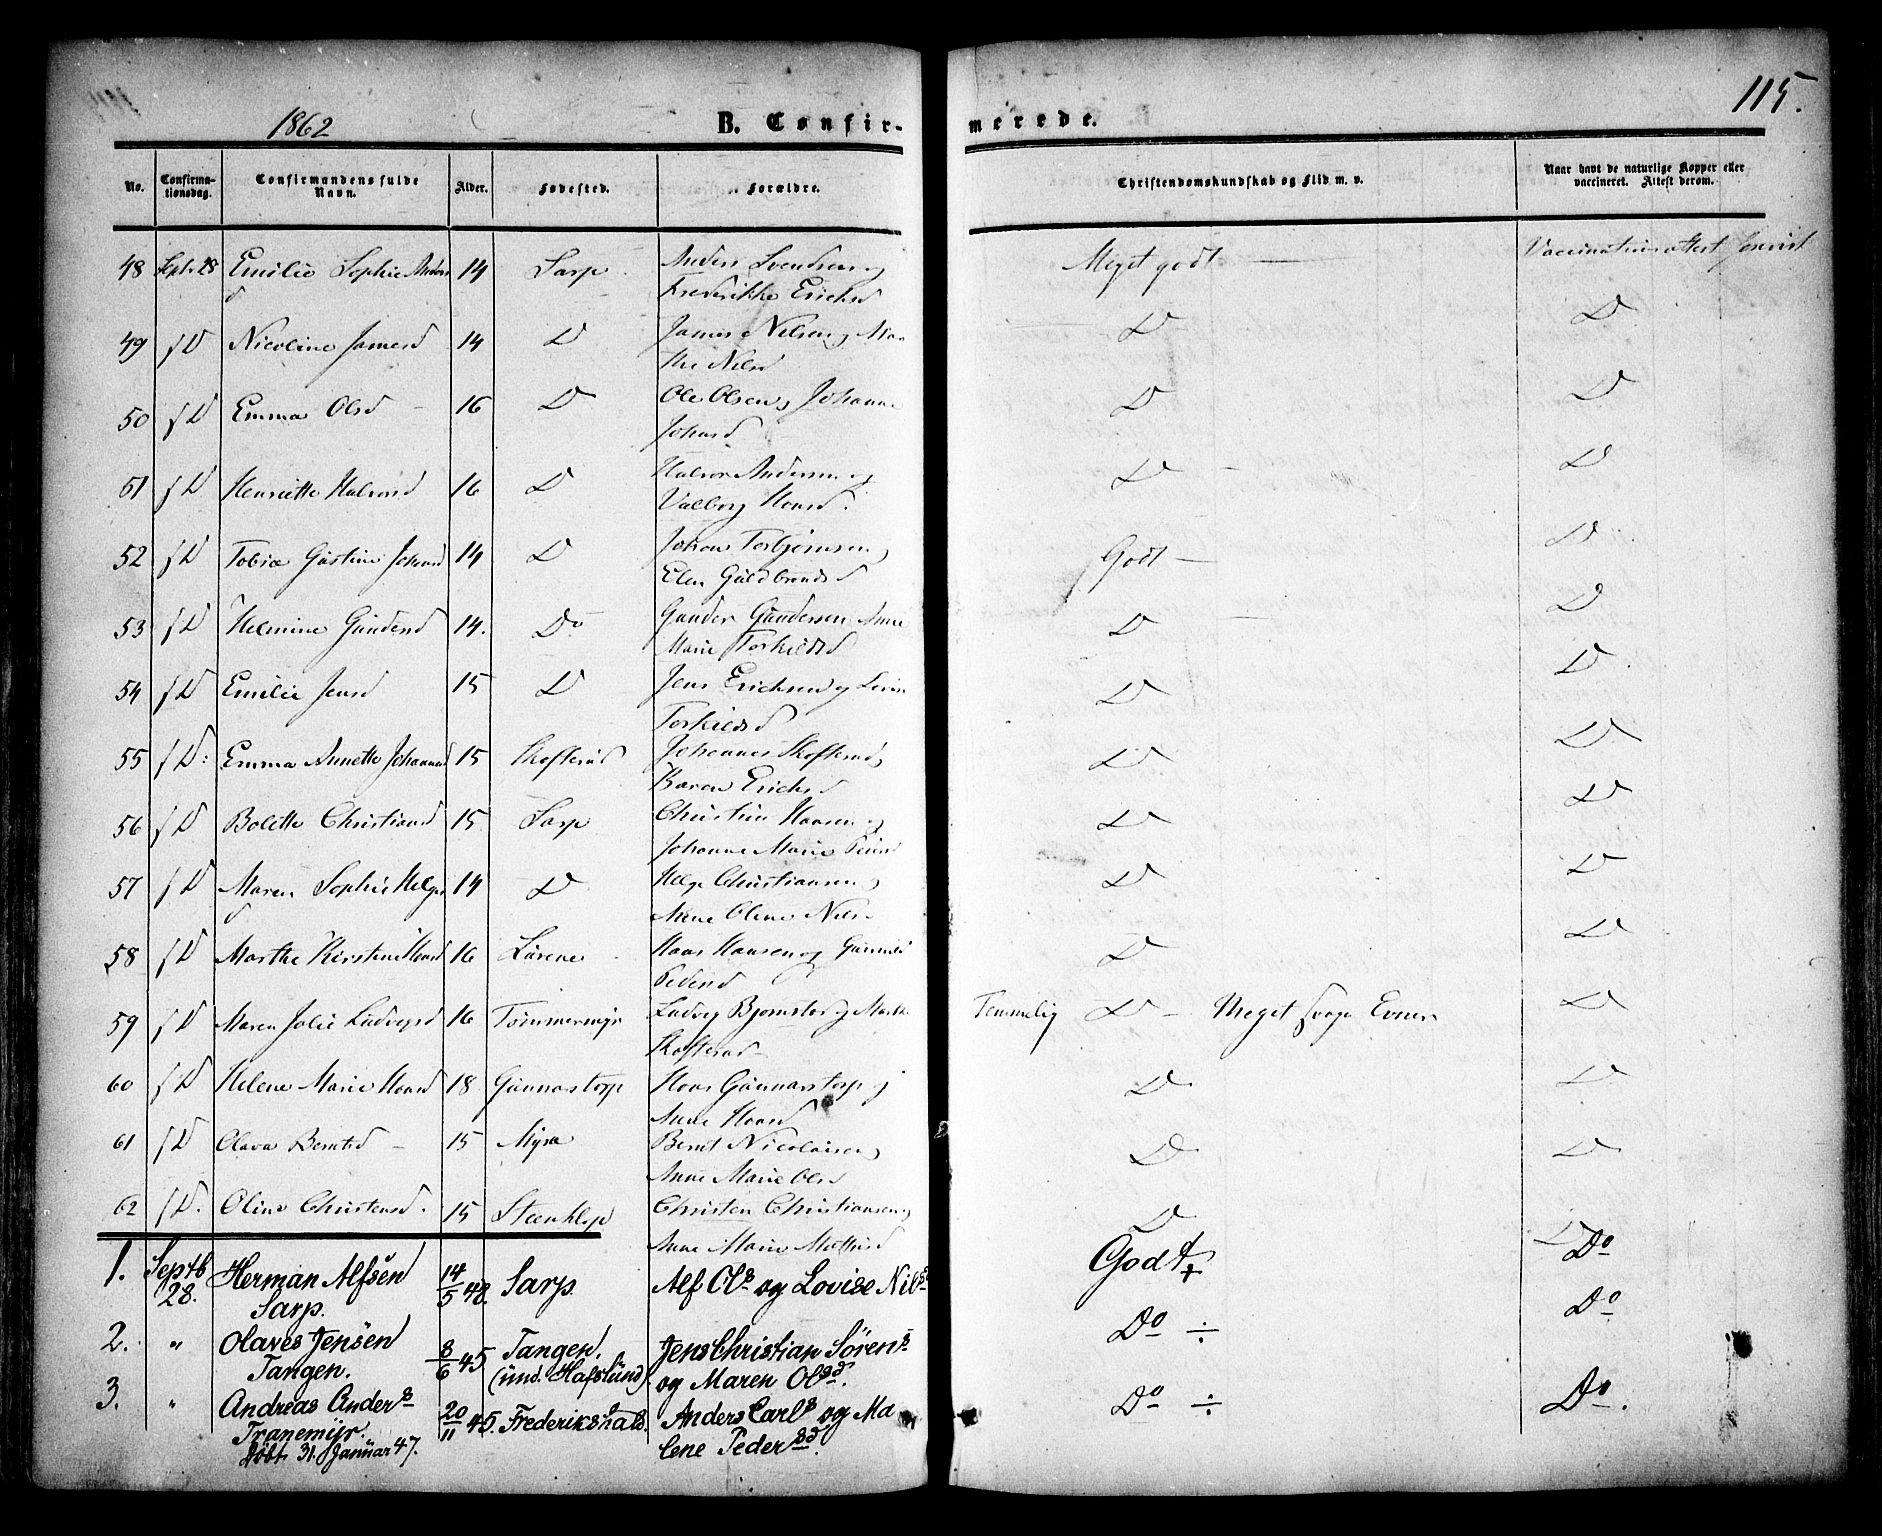 115.
1862 B. Confir- merede.
No. Confirma- tionsdag. Confirmandens fulde Navn. Alder. Fødested. Forældre. Christendomskundskab og Flid m. v. Naar havt de naturlige Kopper eller vaccineret. Attest derom.
48 Septr 28 Emilie Sophie Anders 14 Sarp Anders Svendsen og Meget godt Vaccinationsattest forevist
d Frederikke Erichsd
49 " D Nicoline Jamesd 14 D James Nilsen og Mar D D
the Nilsd
50 " D Emma Olsd 16 D Ole Olsen og Johanne D D
Johnsd
51 " D Henriette Halvorsd 16 D Halvor Andersen og D D
Valborg Hansd.
52 " D Tobia Gustine Johansd 14 D Johan Torbjørnsen og Godt D
Elen Guldbrandsd
53 " D Helmine Gundersd 14. Do Gunder Gundersen Anne D D
Marie Torkildsd
54 " D Emilie Jensd 15 D Jens Erichsen og D D
Torkildsd
55 " D: Emma Annette Johannsd 15 Skofterud Johannes Skofterud og D D
Karen Erichsd
56 " D Bolette Christiansd 15 Sarp Christian Hansen og D D
Johanne Marie
57 " D Maren Sophie Helges 14 D Helge Christiansen og D D
d Anne Oline Nils
58 " D Marthe Kirstine Hansd 16 Lørene Hans Hansen og Gunnild D D
Pedersd
59 " D Maren Julie Ludvigsd 16 Tømmermyr Ludvig Bjørnstør og Marthe Temmelig D Meget svage Evner D
Skofterud
60 " D Helene Marie Hansd 18 Gunnarstorp Hans Gunnarstorp og D D
Anne Hansd
61 " D Olava Berntsd 15 Myra Bernt Nicolaisen og D D
Anne Marie Olsd
62 " D. Oline Christensd. 15 Steenklep Christen Christiansen og D D
Anne Marie Mathisd
1. Septb 28. Herman Alfsen 14/5 48. Sarp. Alf Ols og Lovise Nils Godt + Do
Sarp.
2. " Olaves Jensen 8/6 45 Tangen. Jens Christian Sørens Do ÷ Do
Tangen. (und. Hafslund). og Maren Olsd.
3. " Andreas Anders 20/11 45. Frederikshald. Anders Carls og Ma Do ÷ Do.
Tranemyr. lene Pedersd.
Døbt 31. Januar 47.